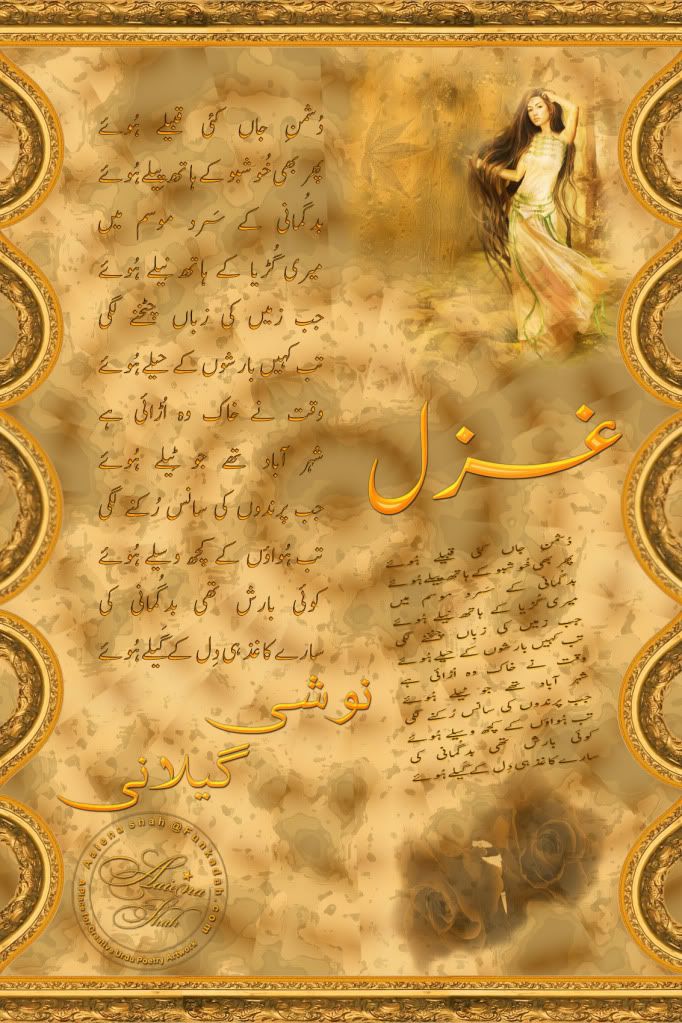 دُشمنِ جاں کئی قبیلے ہُوئے
پھر بھی خُوشبو کے ہاتھ پیلے ہُوئے
بدگُمانی کے سَرد موسم میں
میری گُڑیا کے ہاتھ نیلے ہُوئے
جب زمیں کی زباں چٹخنے لگی
تب کہیں بارشوں کے حیلے ہُوئے
وقت نے خاک وہ اُڑائی ہے
شہر آباد تھے جو ٹیلے ہُوئے
جب پرندوں کی سانس رُکنے لگی
تب ہُواؤں کے کچھ وسیلے ہُوئے
کوئی بارش تھی بدگُمانی کی
سارے کاغذ ہی دِل کے گیلے ہُوئے
غزل
دُشمنِ جاں کئی قبیلے ہُوئے
پھر بھی خُوشبو کے ہاتھ پیلے ہُوئے
بدگُمانی کے سَرد موسم میں
میری گُڑیا کے ہاتھ نیلے ہُوئے
جب زمیں کی زباں چٹخنے لگی
تب کہیں بارشوں کے حیلے ہُوئے
وقت نے خاک وہ اُڑائی ہے
شہر آباد تھے جو ٹیلے ہُوئے
جب پرندوں کی سانس رُکنے لگی
تب ہُواؤں کے کچھ وسیلے ہُوئے
کوئی بارش تھی بدگُمانی کی
سارے کاغذ ہی دِل کے گیلے ہُوئے
نوشی
گیلانی
Aaiena Shah @Funkadah.com
Aaiena
Shah
Urdu Poetry Artwork